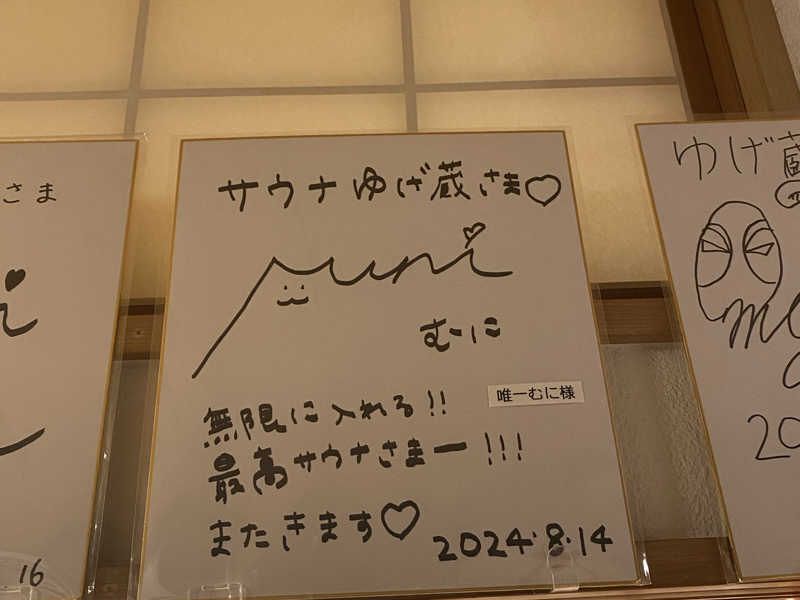 さま
16
サウナ ゆげ蔵 さま♡
muni
むーに
唯一むに様
無限に入れる!!
最高サウナさまー!!!
またきます♡
2024.8.14
ゆげ蔵
20